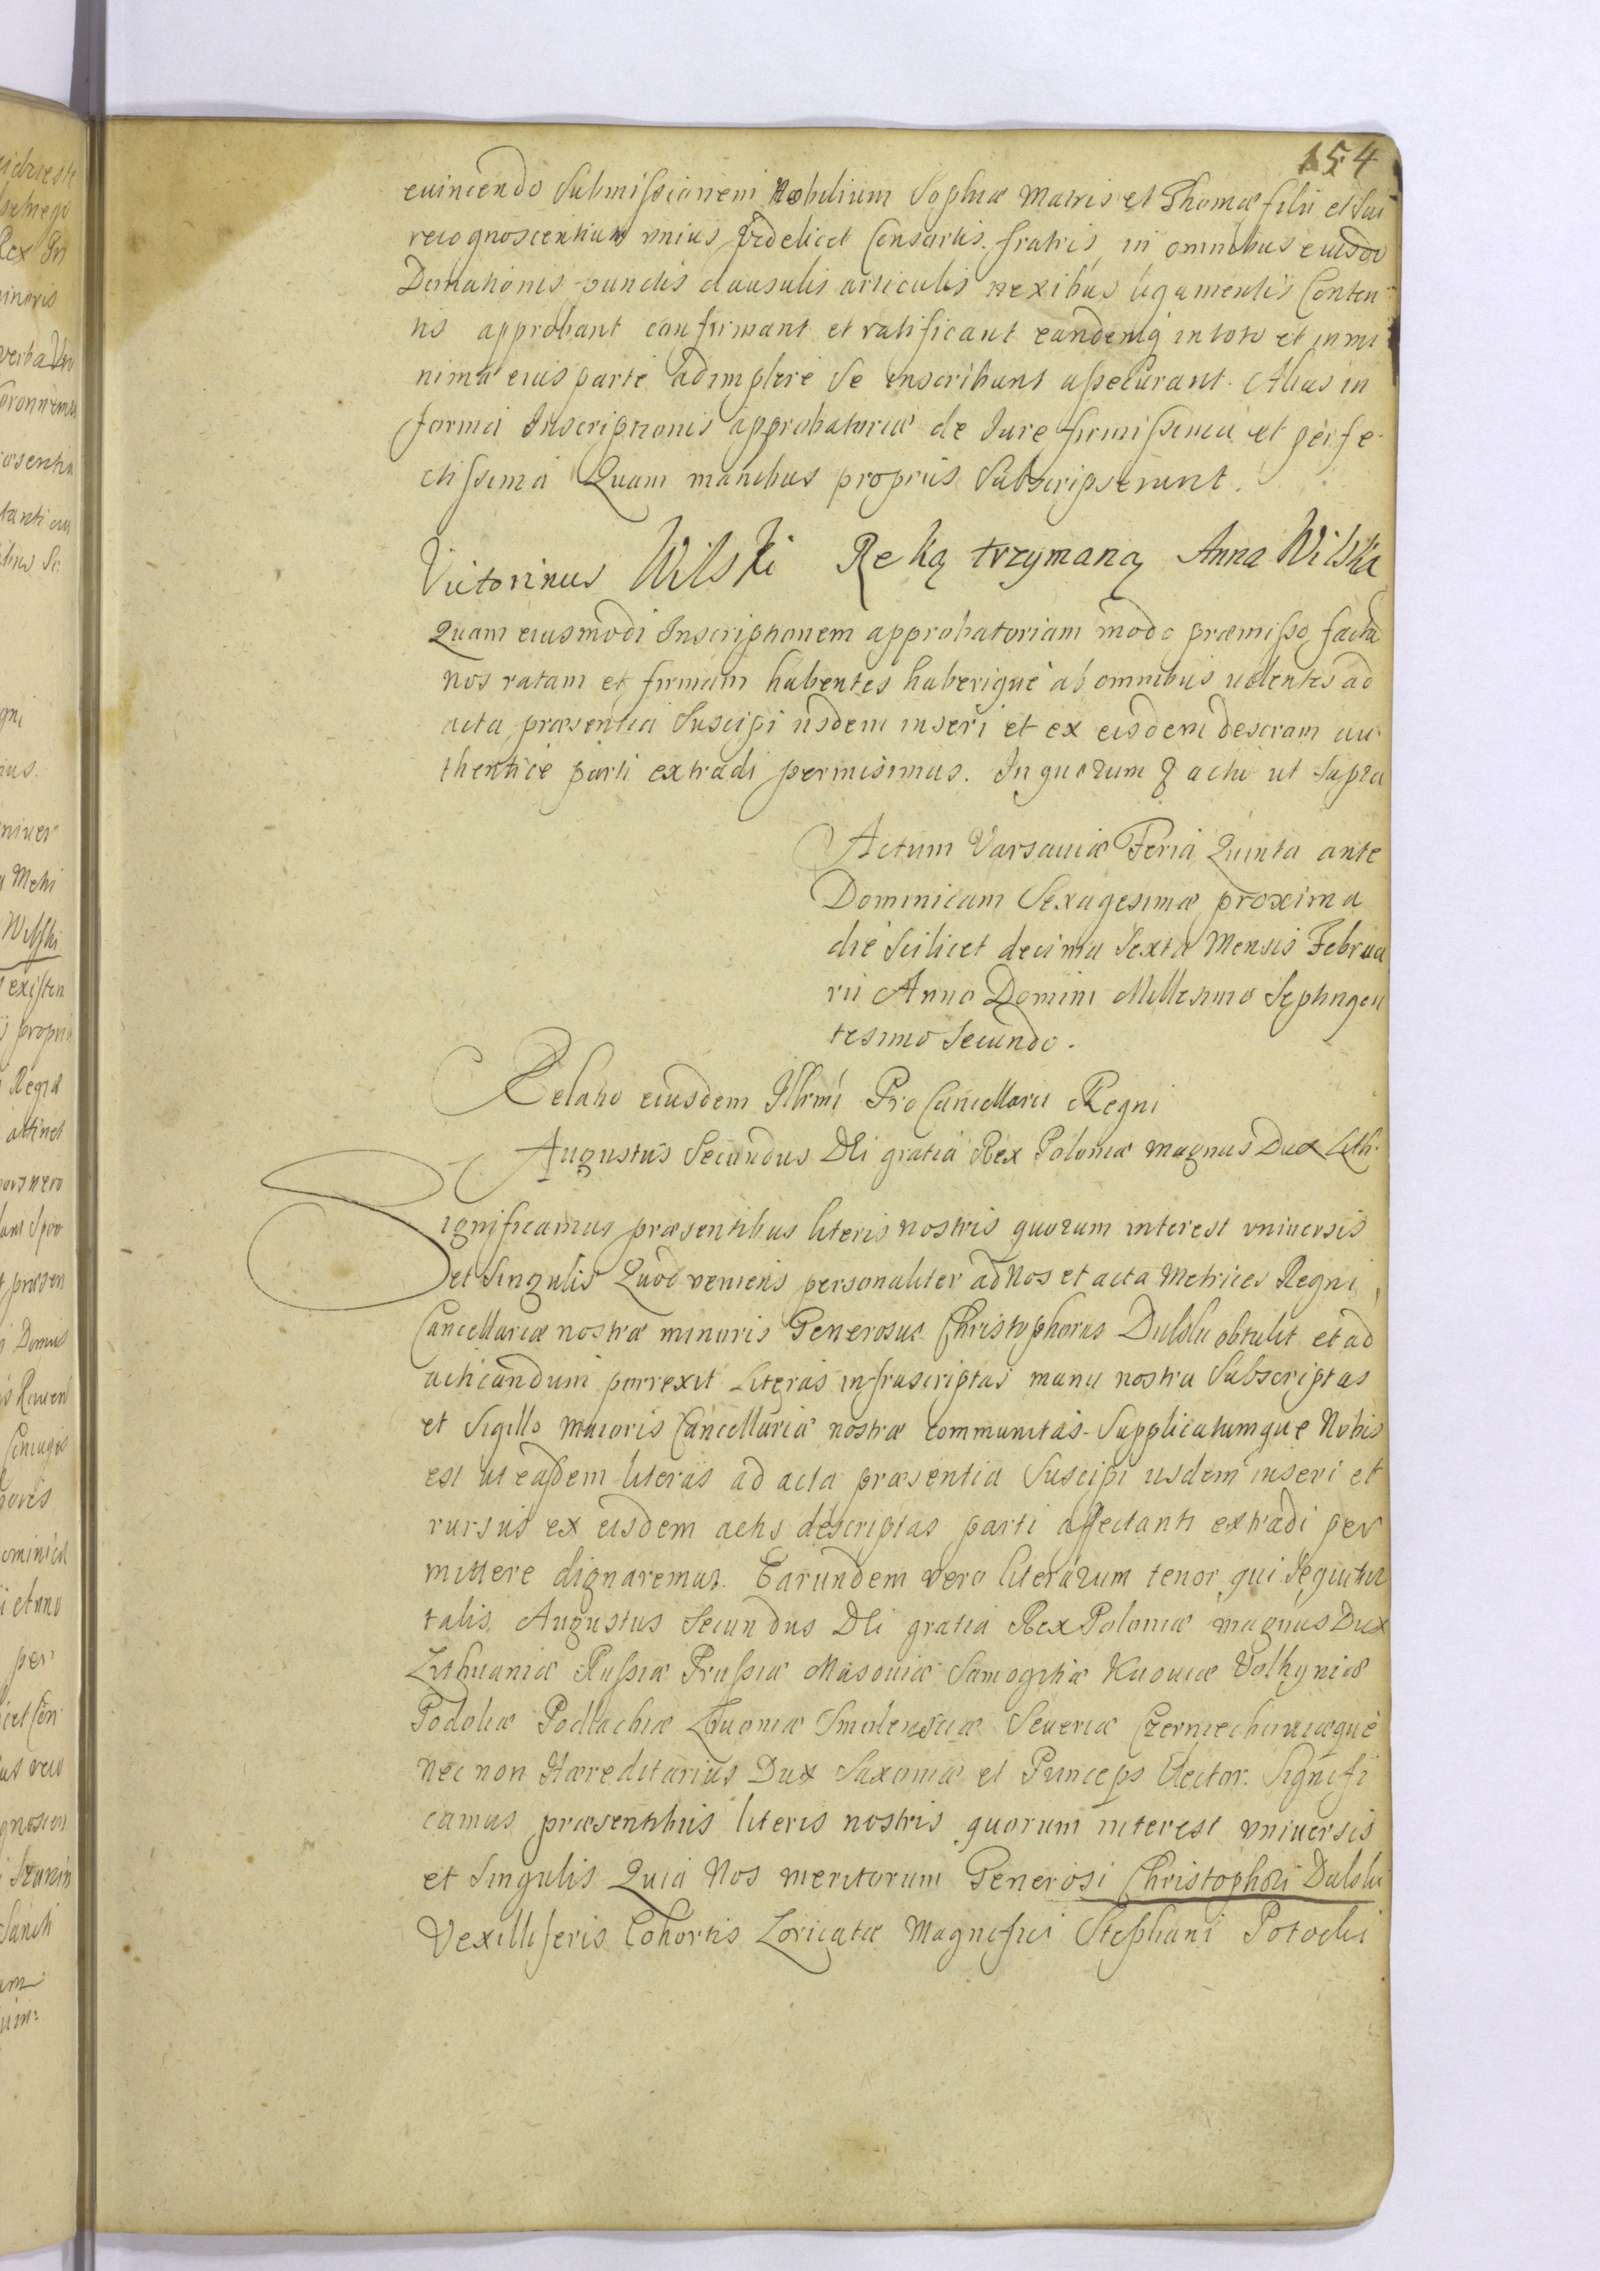 154
euincendo Submissionem Nobilium Sophiæ Matris et Thomæ filii et sui
recognoscentium vnius videlicet Consortis fratris in omnibus eiusdē
Donationis punctis clausulis articulis nexibus ligamentis Conten
tis approbant confirmant et ratificant eandemq in toto et in mi
nima eius parte adimplere se inscribunt assecurant. Alias in
forma Inscriptionis approbatoriæ de Iure firmissima et perfe
ctissima Quam manibus propriis Subscripserunt.
Victorinus Wilski Reką trzymaną Anna Wilska
Quam eiusmodi Inscriptionem approbatoriam modo præmisso factā
nos ratam et firmam habentes haberique ab omnibus uolentes ad
acta præsentia Suscipi iisdem inseri et ex eisdem descram au
thentice parti extradi permisimus. In quorum & actu ut supra
Actum Varsauiæ Feria Quinta ante
Dominicam Sexagesimæ proxima
die Scilicet decima Sexta Mensis Februa
rii Anno Domini Millesimo Septingen
tesimo Secundo.
Relatio eiusdem Illrmi Pro Cancellarii Regni
Augustus Secundus Dli gratia Rex Poloniæ Magnus Dux Lith.
Significamus præsentibus literis nostris quorum interest vniuersis
et Singulis Quod veniens personaliter ad Nos et acta Metrices Regni
Cancellariæ nostræ minoris Generosus Christophorus Dulski obtulit et ad
acticandum porrexit Literas infrascriptas manu nostra Subscriptas
et Sigillo Maioris Cancellariæ nostræ communitas. Supplicatumque Nobis
est ut easdem literas ad acta præsentia Suscipi iisdem inseri et
rursus ex eisdem actis descriptas parti affectanti extradi per
mittere dignaremur. Earundem vero literarum tenor qui Sequitur
talis. Augustus Secundus Dli gratia Rex Poloniæ Magnus Dux
Lithuaniæ Russiæ Prussiæ Masouiæ Samogitiæ Kiiouiæ Volhyniæ
Podoliæ Podlachiæ Liuoniæ Smolensciæ Seueriæ Czerniechouiæque
nec non Hæreditarius Dux Saxoniæ et Princeps Elector. Signifi
camus præsentibus literis nostris quorum interest vniuersis
et Singulis Quia Nos meritorum Generosi Christophori Dulski
Vexilliferis Cohortis Loricatæ Magnifici Stephani Potocki